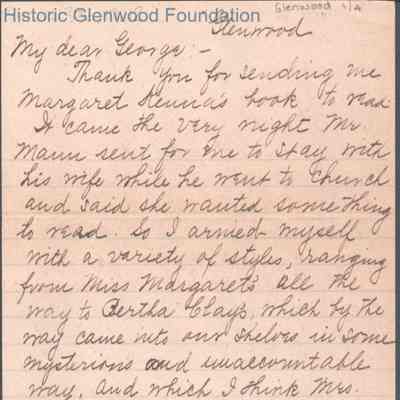 Historic Glenwood Foundation
Glenwood 1/4
Glenwood
My dear George:-
Thank you for sending me
Margaret Kenna's book to read
It came the very night Mr.
Mann sent for me to stay with
his wife while he went to church
and said she wanted something
to read. So I armed myself
with a variety of styles, ranging
from Miss Margaret's all the
way to Bertha Clay's, which by the
way came into our shelves in some
mysterious and unaccountable
way, and which I think Mrs.